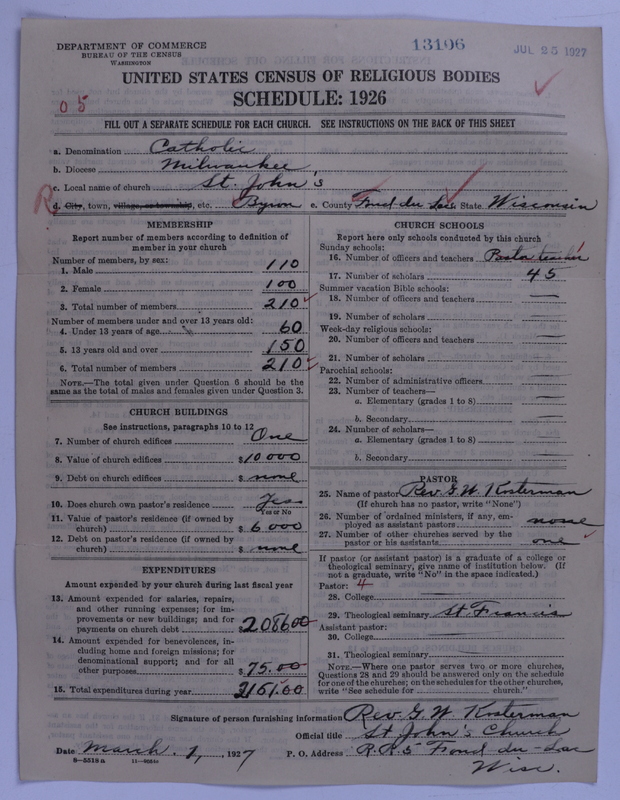 DEPARTMENT OF COMMERCE
BUREAU OF THE CENSUS
WASHINGTON
13106
JUL 25 1927
UNITED STATES CENSUS OF RELIGIOUS BODIES
SCHEDULE: 1926
05
FILL OUT A SEPARATE SCHEDULE FOR EACH CHURCH. SEE INSTRUCTIONS ON THE BACK OF THIS SHEET
a. Denomination Catholic
b. Diocese Milwaukee
c. Local name of church St. John's
R
d. City, town, village, or township, etc. Byron e. County Fond du Lac State Wisconsin
MEMBERSHIP
Report number of members according to definition of
member in your church
Number of members, by sex:
1. Male 110
2. Female 100
3. Total number of members 210
Number of members under and over 13 years old:
4. Under 13 years of age 60
5. 13 years old and over 150
6. Total number of members 210
NOTE.—The total given under Question 6 should be
same as the total of males and females given under Question 3.
CHURCH BUILDINGS
See instructions, paragraphs 10 to 12
7. Number of church edifices One
8. Value of church edifices $10000
9. Debt on church edifices $ none
10. Does church own pastor's residence Yes
Yes or No
11. Value of pastor's residence (if owned by
church) $6000
12. Debt on pastor's residence (if owned by
church) $ none
EXPENDITURES
Amount expended by your church during last fiscal year
13. Amount expended for salaries, repairs,
and other running expenses; for im-
provements or new buildings; and for
payments on church debt $208600
14. Amount expended for benevolences, in-
cluding home and foreign missions; for
denominational support; and for all
other purposes $75.00
15. Total expenditures during year 2161.00
CHURCH SCHOOLS
Report here only schools conducted by this church
Sunday schools:
16. Number of officers and teachers Pastor teacher
17. Number of scholars 45
Summer vacation Bible schools:
18. Number of officers and teachers —
19. Number of scholars —
Week-day religious schools:
20. Number of officers and teachers —
21. Number of scholars —
Parochial schools:
22. Number of administrative officers —
23. Number of teachers—
a. Elementary (grades 1 to 8) —
b. Secondary —
24. Number of scholars—
a. Elementary (grades 1 to 8) —
b. Secondary —
PASTOR
25. Name of pastor Rev. G. W. Kosterman
(If church has no pastor, write "None")
26. Number of ordained ministers, if any, em-
ployed as assistant pastors none
27. Number of other churches served by the
pastor or his assistants one
If pastor (or assistant pastor) is a graduate of a college or
theological seminary, give name of institution below. (If
not a graduate, write "No" in the space indicated.)
Pastor: 4
28. College —
29. Theological seminary St. Francis
Assistant pastor:
30. College —
31. Theological seminary —
NOTE.—Where one pastor serves two or more churches,
Questions 28 and 29 should be answered only on the schedule
for one of the churches; on the schedules for the other churches,
write "See schedule for church."
Signature of person furnishing information Rev. G. W. Kosterman
Official title St John's Church
Date March 1, 1927 P. O. Address R.R. 5 Fond du-Lac
Wisc.
8—5518a